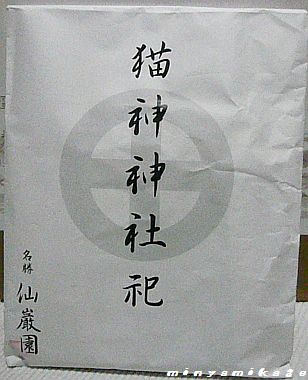 猫神神社祀
名勝
仙巌園
minyamika2o